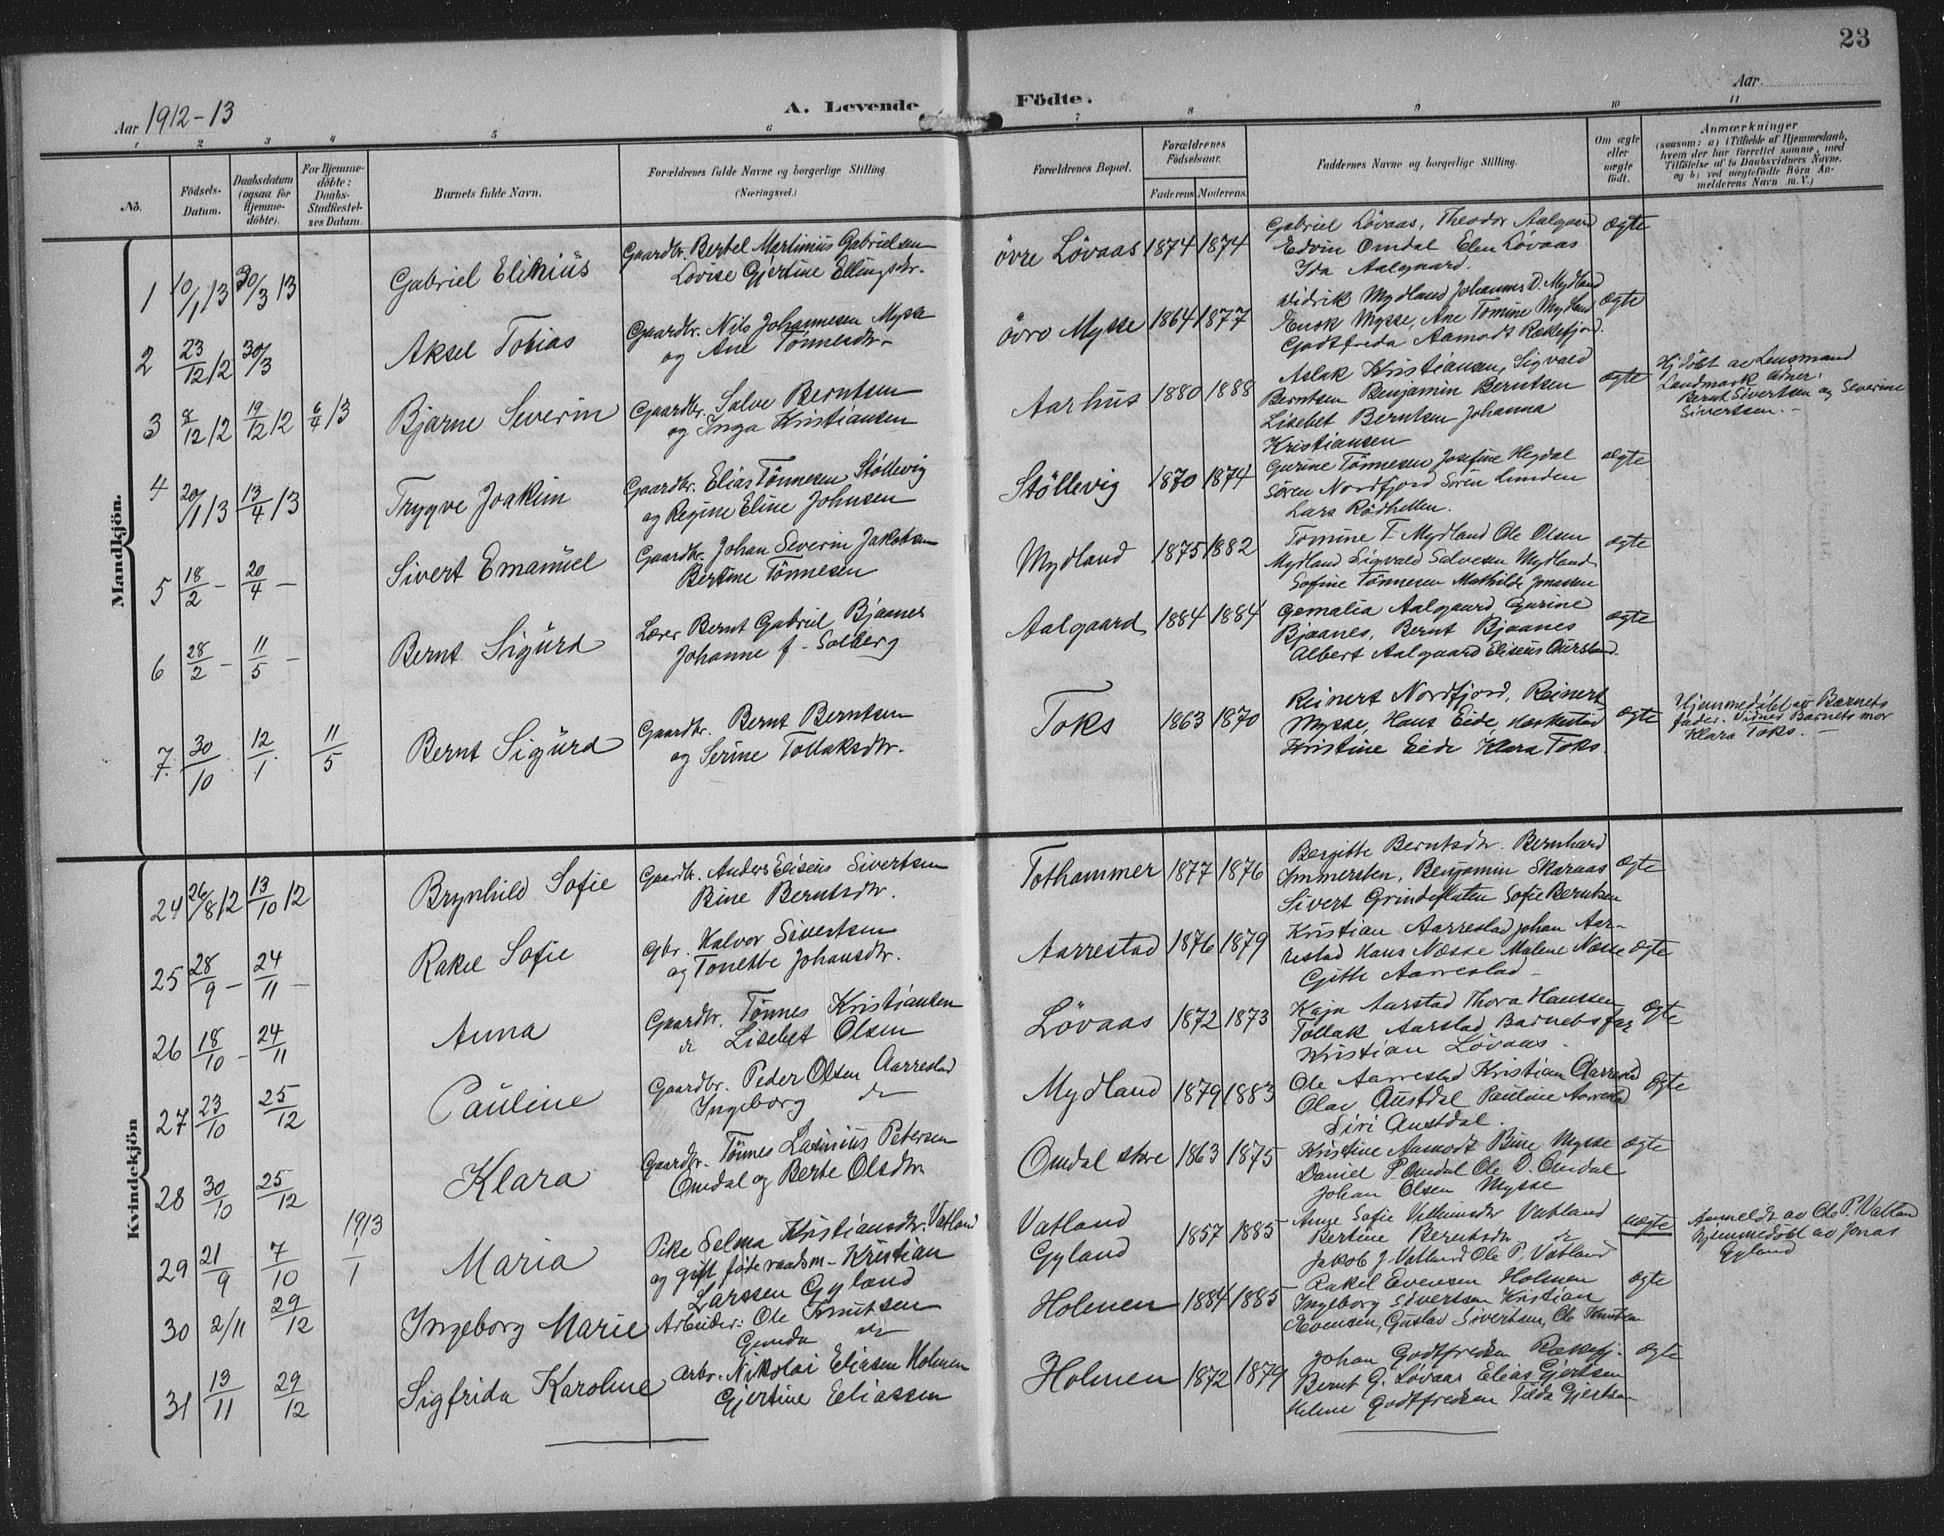 23
Aar 1912-13
A. Levende Födte.
Aar
1 2 3 4 5 6 7 8 9 10 11
No.
Födsels-Datum.
Daabsdatum (ogsaa for Hjemme-döbte).
For Hjemme-döbte: Daabs-Stadfæstel-ses Datum.
Barnets fulde Navn.
Forældrenes fulde Navne og borgerlige Stilling (Næringsvei.)
Forældrenes Bopæl.
Forældrenes Födselsaar.
Faderens Moderens.
Faddernes Navne og borgerlige Stilling.
Om ægte eller uægte födt.
Anmærkninger
(saasom: a) i Tilfælde af Hjemmedaab,
hvem der har forrettet samme, med
Tilföielse af to Daabsvidners Navne.
og b) ved uægtefödte Börn An-
melderens Navn m. V.)
Mandkjön.
1 10/1 13 30/3 13 Gabriel Elinius
Gaardbr. Bertel Martinius Gabrielsen
Lovise Gjertine Ellingsdtr.
övre Lövaas 1874 1874
Gabriel Lövaas, Theodor Aalgaard
Edvin Omdal Elen Lövaas
Ida Aalgaard.
ægte
2 23/12 12 30/3 Aksel Tobias
Gaardbr. Nils Johannesen Mysse
og Ane Tönnesdtr.
övre Mysse 1864 1877
Didrik Mydland Johannes D. Mydland
Enok Mysse, Ane Tomine Mydland
Godtfreda Aamodt Rækefjord.
ægte
3 8/12 12 19/12 12 6/4 13 Bjarne Severin
Gaardbr. Salve Berntsen
og Inga Kristiansen
Aarhus 1880 1888
Aslak Kristiansen, Sigvald
Berntsen Benjamin Berntsen
Lisebet Berntsen Johanna
Kristiansen
ægte
Hjdöbt av Lensmand
Landmark vidner:
Bernt Sivertsen og Severine
Sivertsen. -
4 20/1 13 13/4 13 Trygve Joakim
Gaardbr. Elias Tönnesen Stöllevig
og Regine Eline Johnsen
Stöllevig 1870 1874
Gurine Tönnesen Josefine Hegdal
Sören Nordfjord Sören Lunden
Lars Rödhellen.
ægte
5 18/2 - 20/4 - Sivert Emanuel
Gaardbr. Johan Severin Jakobsen
Bertine Tönnesen
Mydland 1875 1882
Tomine T Mydland Ole Olsen
Mydland Sigvald Salvesen Mydland
Sofine Tönnesen Mathilde Jonassen
ægte
6 28/2 - 11/5 - Bernt Sigurd
Lærer Bernt Gabriel Bjaanes
Johanne f - Solberg
Aalgaard 1884 1884
Gemalia Aalgaard Gurine
Bjaanes, Bernt Bjaanes
Albert Aalgaard Eliseus Aursland.
ægte
7. 30/10 12/1 11/5 Bernt Sigurd
Gaardbr. Bernt Berntsen
og Serine Tollaksdtr.
Toks 1863 1870
Reinert Nordfjord, Reinert
Mysse, Hans Eide, Herkestad
Kristine Eide Klara Toks
ægte
Hjemmedöbt av Barnets
fader. Vidner Barnets mor
Klara Toks. -
Kvindekjön
24 26/8 12 13/10 12 Brynhild Sofie
Gaardbr. Anders Eliseus Sivertsen
Bine Berntsdtr.
Tothammer 1877 1876
Bergitte Berntsdtr. Bernhard
Immersten, Benjamin Skaraas
Sivert Grindeflaten Sofie Berntsen
ægte
25 28/9 - 24/11 - Rakel Sofie
gbr. Halvor Sivertsen
og Tonette Johansdtr.
Aarrestad 1876 1879
Kristian Aarrestad Johan Aar-
restad Hans Næsse Malene Næsse
Gjitte Aarrestad -
ægte
26 18/10 - 24/11 Anna
Gaardbr. Tönnes Kristiansen
Lisebet Olsen
Lövaas 1872 1873
Kaja Aarstad Thora Hanssen
Tollak Aarstad Barnets far
Kristian Lövaas.
ægte
27 23/10 25/12 Pauline
Gaardbr. Peder Olsen Aarrestad
Ingeborg do
Mydland 1879 1883
Ole Aarrestad Kristian Aarrestad
Olav Austdal Pauline Aarrestad
Siri Austdal.
ægte
28 30/10 25/12 Klara
Gaardbr. Tönnes Lasinius Petersen
Omdal og Berte Olsdtr.
Omdal store 1863 1875
Kristine Aamodt Bine Mysse
Daniel P. Omdal Ole D. Omdal
Johan Olsen Mysse
ægte
29 21/9 7/10 1913 1/1 Maria
Pike Selma Kristiansdtr. Vatland
og gift föderaadsm - Kristian
Larssen Gyland
Vatland
Gyland
1857 1885
Ane Sofie Vilhemsdtr Vatland
Bertine Berntsdtr do
Jakob J. Vatland Ole P. Vatland
uægte
Anmeldt av Ole P. Vatland
hjemmedöbt av Jonas
Gyland
30 2/11 29/12 Ingeborg Marie
Arbeider: Ole Knutsen
Gunda do
Holmen 1884 1885
Rakel Evensen Holmen
Ingeborg Sivertsen Kristian
Evensen, Gustav Sivertsen, Ole Knutsen
ægte
31 13/11 29/12 Sigfrida Karoline
arbr. Nikolai Eliasen Holmen
Gjertine Eliassen
Holmen 1872 1879
Johan Godtfredsen Rækefj.
Bernt G. Lövaas Elias Gjertsen
Helene Godtfredsen Tilda Gjertsen
ægte